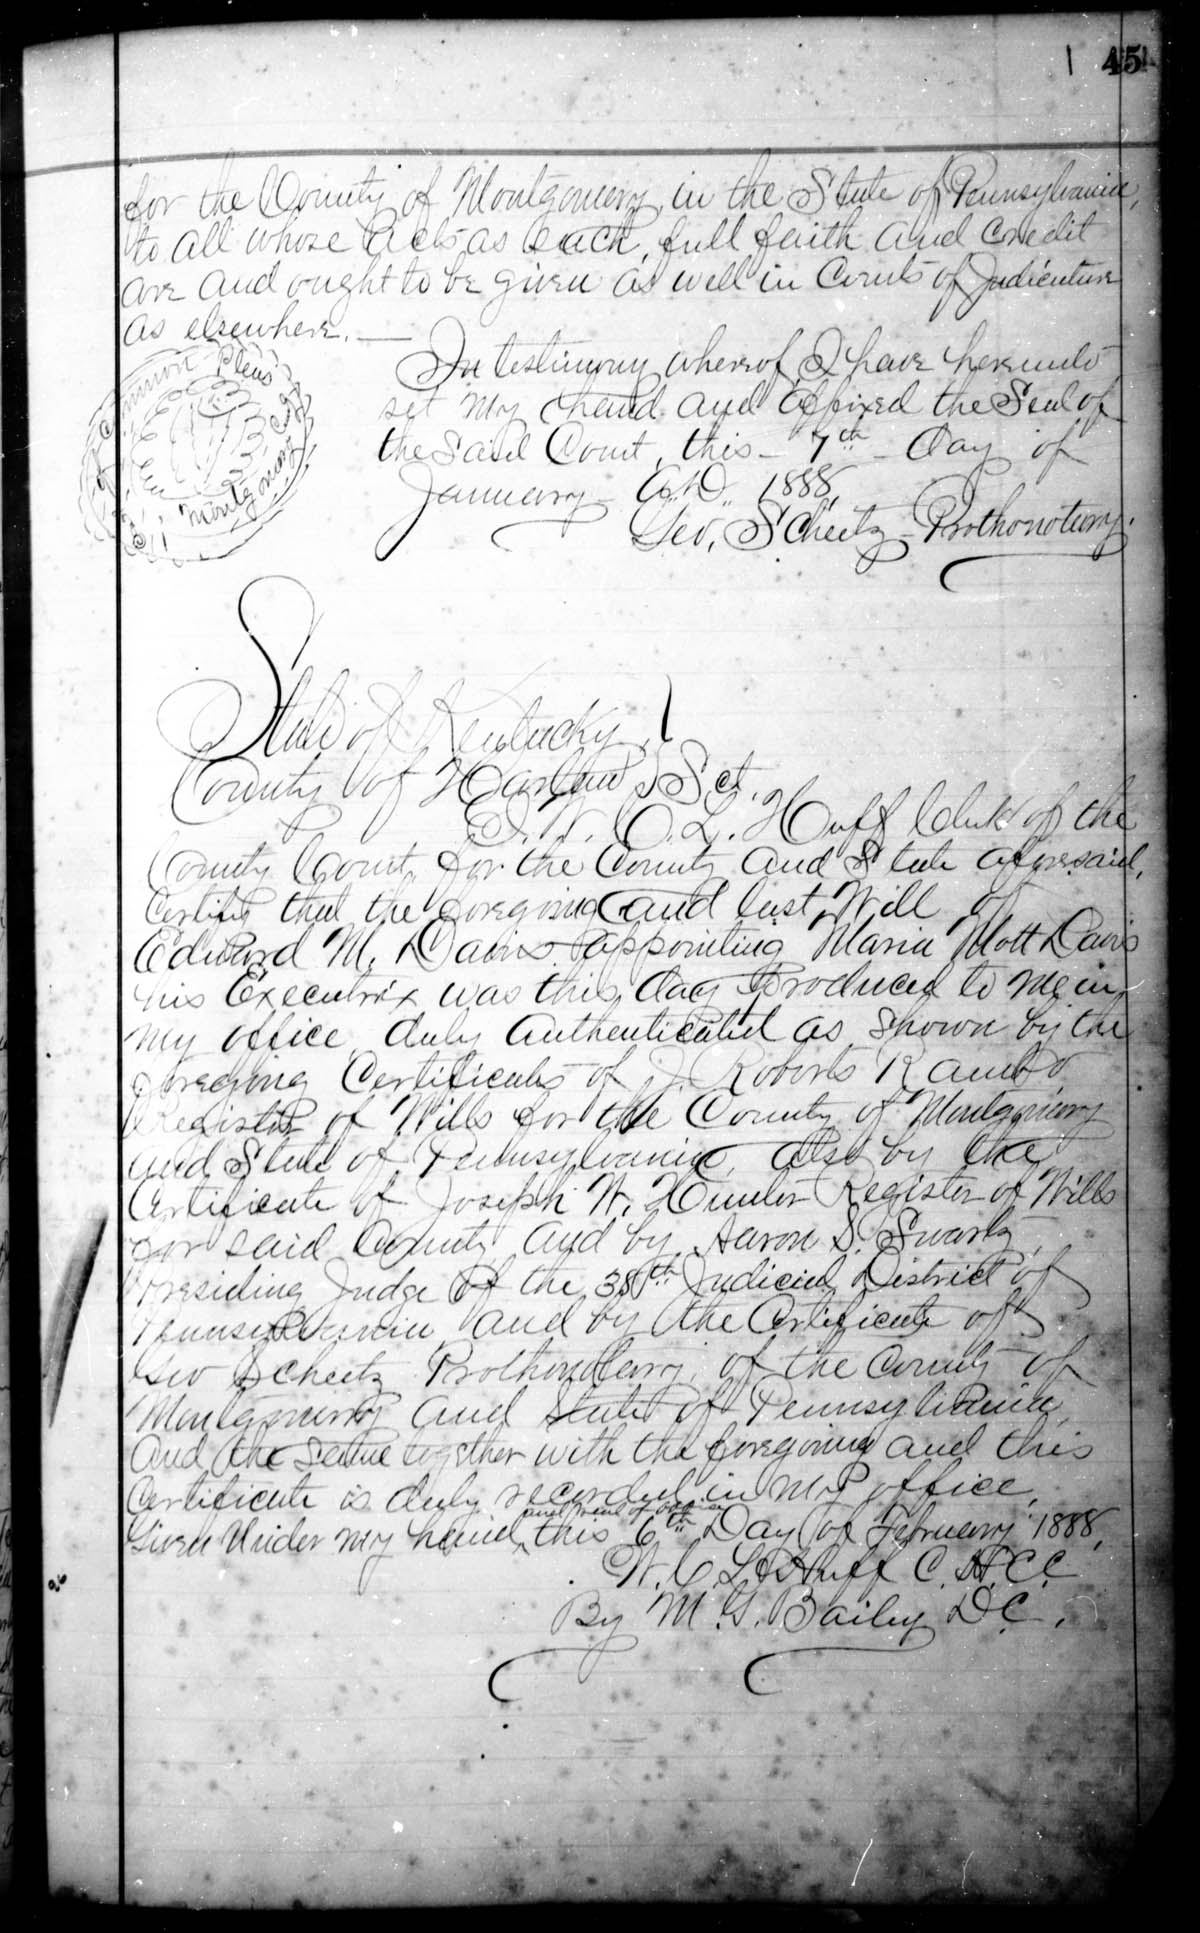 45
for the County of Montgomery, in the State of Pennsylvania,
to all whose acts as such, full faith and credit
are and ought to be given as well in Courts of Judicature
as elsewhere. —
Common Pleas
Montgomery Co
In testimony whereof, I have hereunto
set my hand and affixed the Seal of
the said Court, this — 7th — day of
January A.D. 1888,
Geo. Scheetz — Prothonotary.
State of Kentucky
County of Harlan Sct.
I, W. C. L. Huff Clerk of the
County Court for the County and State aforesaid,
certify that the foregoing and last Will of
Edward M. Davis appointing Maria Mott Davis
his Executrix was this day produced to me in
my office duly authenticated as shown by the
foregoing Certificate of J. Roberts Rambo
Register of Wills for the County of Montgomery
and State of Pennsylvania, also by the
Certificate of Joseph W. Hunter Register of Wills
for said County and by Aaron S. Swartz,
Presiding Judge of the 38th Judicial District of
Pennsylvania and by the Certificate of
Geo Scheetz Prothonotary, of the County of
Montgomery and State of Pennsylvania
and the same together with the foregoing and this
Certificate is duly recorded in my office,
and seal of office
Given Under my hand, this 6th Day of February 1888,
W. C. L. Huff C. H. C. C.
By M. G. Bailey D.C.